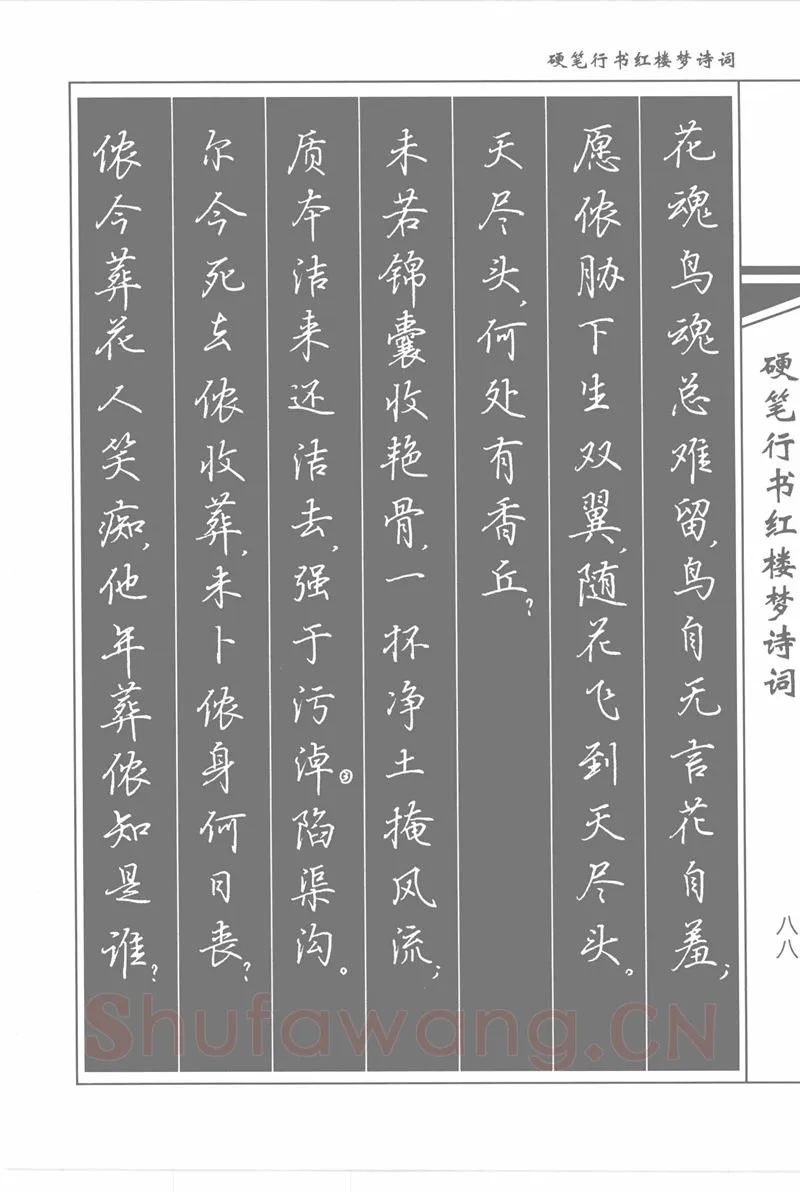 硬笔行书红楼梦诗词
花魂鸟魂总难留,鸟自无言花自羞;
愿侬胁下生双翼,随花飞到天尽头。
天尽头,何处有香丘?
未若锦囊收艳骨,一抔净土掩风流;
质本洁来还洁去,强于污淖③陷渠沟。
尔今死去侬收葬,未卜侬身何日丧?
侬今葬花人笑痴,他年葬侬知是谁?
硬笔行书红楼梦诗词
八八
Shufawang.CN